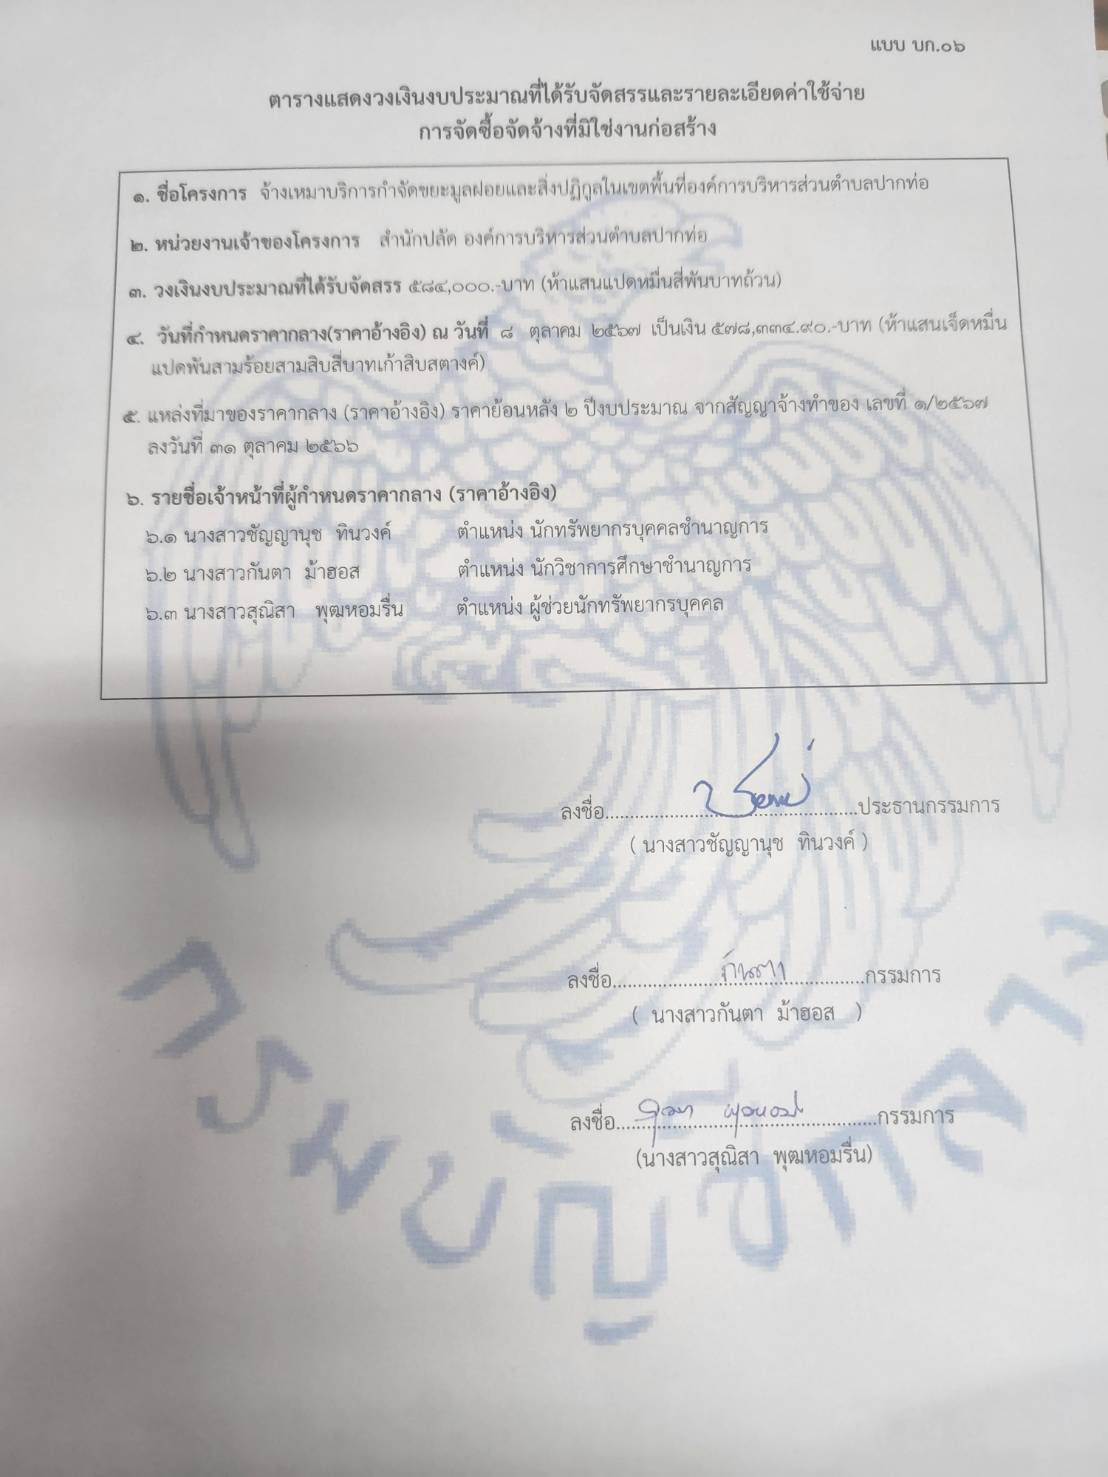 แบบ บก.๐๖
ตารางแสดงวงเงินงบประมาณที่ได้รับจัดสรรและรายละเอียดค่าใช้จ่าย
การจัดซื้อจัดจ้างที่มิใช่งานก่อสร้าง
๑. ชื่อโครงการ จ้างเหมาบริการกำจัดขยะมูลฝอยและสิ่งปฏิกูลในเขตพื้นที่องค์การบริหารส่วนตำบลปากท่อ
๒. หน่วยงานเจ้าของโครงการ สำนักปลัด องค์การบริหารส่วนตำบลปากท่อ
๓. วงเงินงบประมาณที่ได้รับจัดสรร ๕๘๔,๐๐๐.-บาท (ห้าแสนแปดหมื่นสี่พันบาทถ้วน)
๔. วันที่กำหนดราคากลาง(ราคาอ้างอิง) ณ วันที่ ๘ ตุลาคม ๒๕๖๗ เป็นเงิน ๕๗๘,๓๓๔.๙๐.-บาท (ห้าแสนเจ็ดหมื่น
แปดพันสามร้อยสามสิบสี่บาทเก้าสิบสตางค์)
๕. แหล่งที่มาของราคากลาง (ราคาอ้างอิง) ราคาย้อนหลัง ๒ ปีงบประมาณ จากสัญญาจ้างทำของ เลขที่ ๑/๒๕๖๗
ลงวันที่ ๓๑ ตุลาคม ๒๕๖๖
๖. รายชื่อเจ้าหน้าที่ผู้กำหนดราคากลาง (ราคาอ้างอิง)
๖.๑ นางสาวชัญญานุช ทินวงค์ ตำแหน่ง นักทรัพยากรบุคคลชำนาญการ
๖.๒ นางสาวกันตา ม้าฮอส ตำแหน่ง นักวิชาการศึกษาชำนาญการ
๖.๓ นางสาวสุณิสา พุฒหอมรื่น ตำแหน่ง ผู้ช่วยนักทรัพยากรบุคคล
ลงชื่อ..............................ประธานกรรมการ
( นางสาวชัญญานุช ทินวงค์ )
ลงชื่อ........กันตา........กรรมการ
( นางสาวกันตา ม้าฮอส )
ลงชื่อ..............................กรรมการ
(นางสาวสุณิสา พุฒหอมรื่น)
กรมบัญชีกลาง